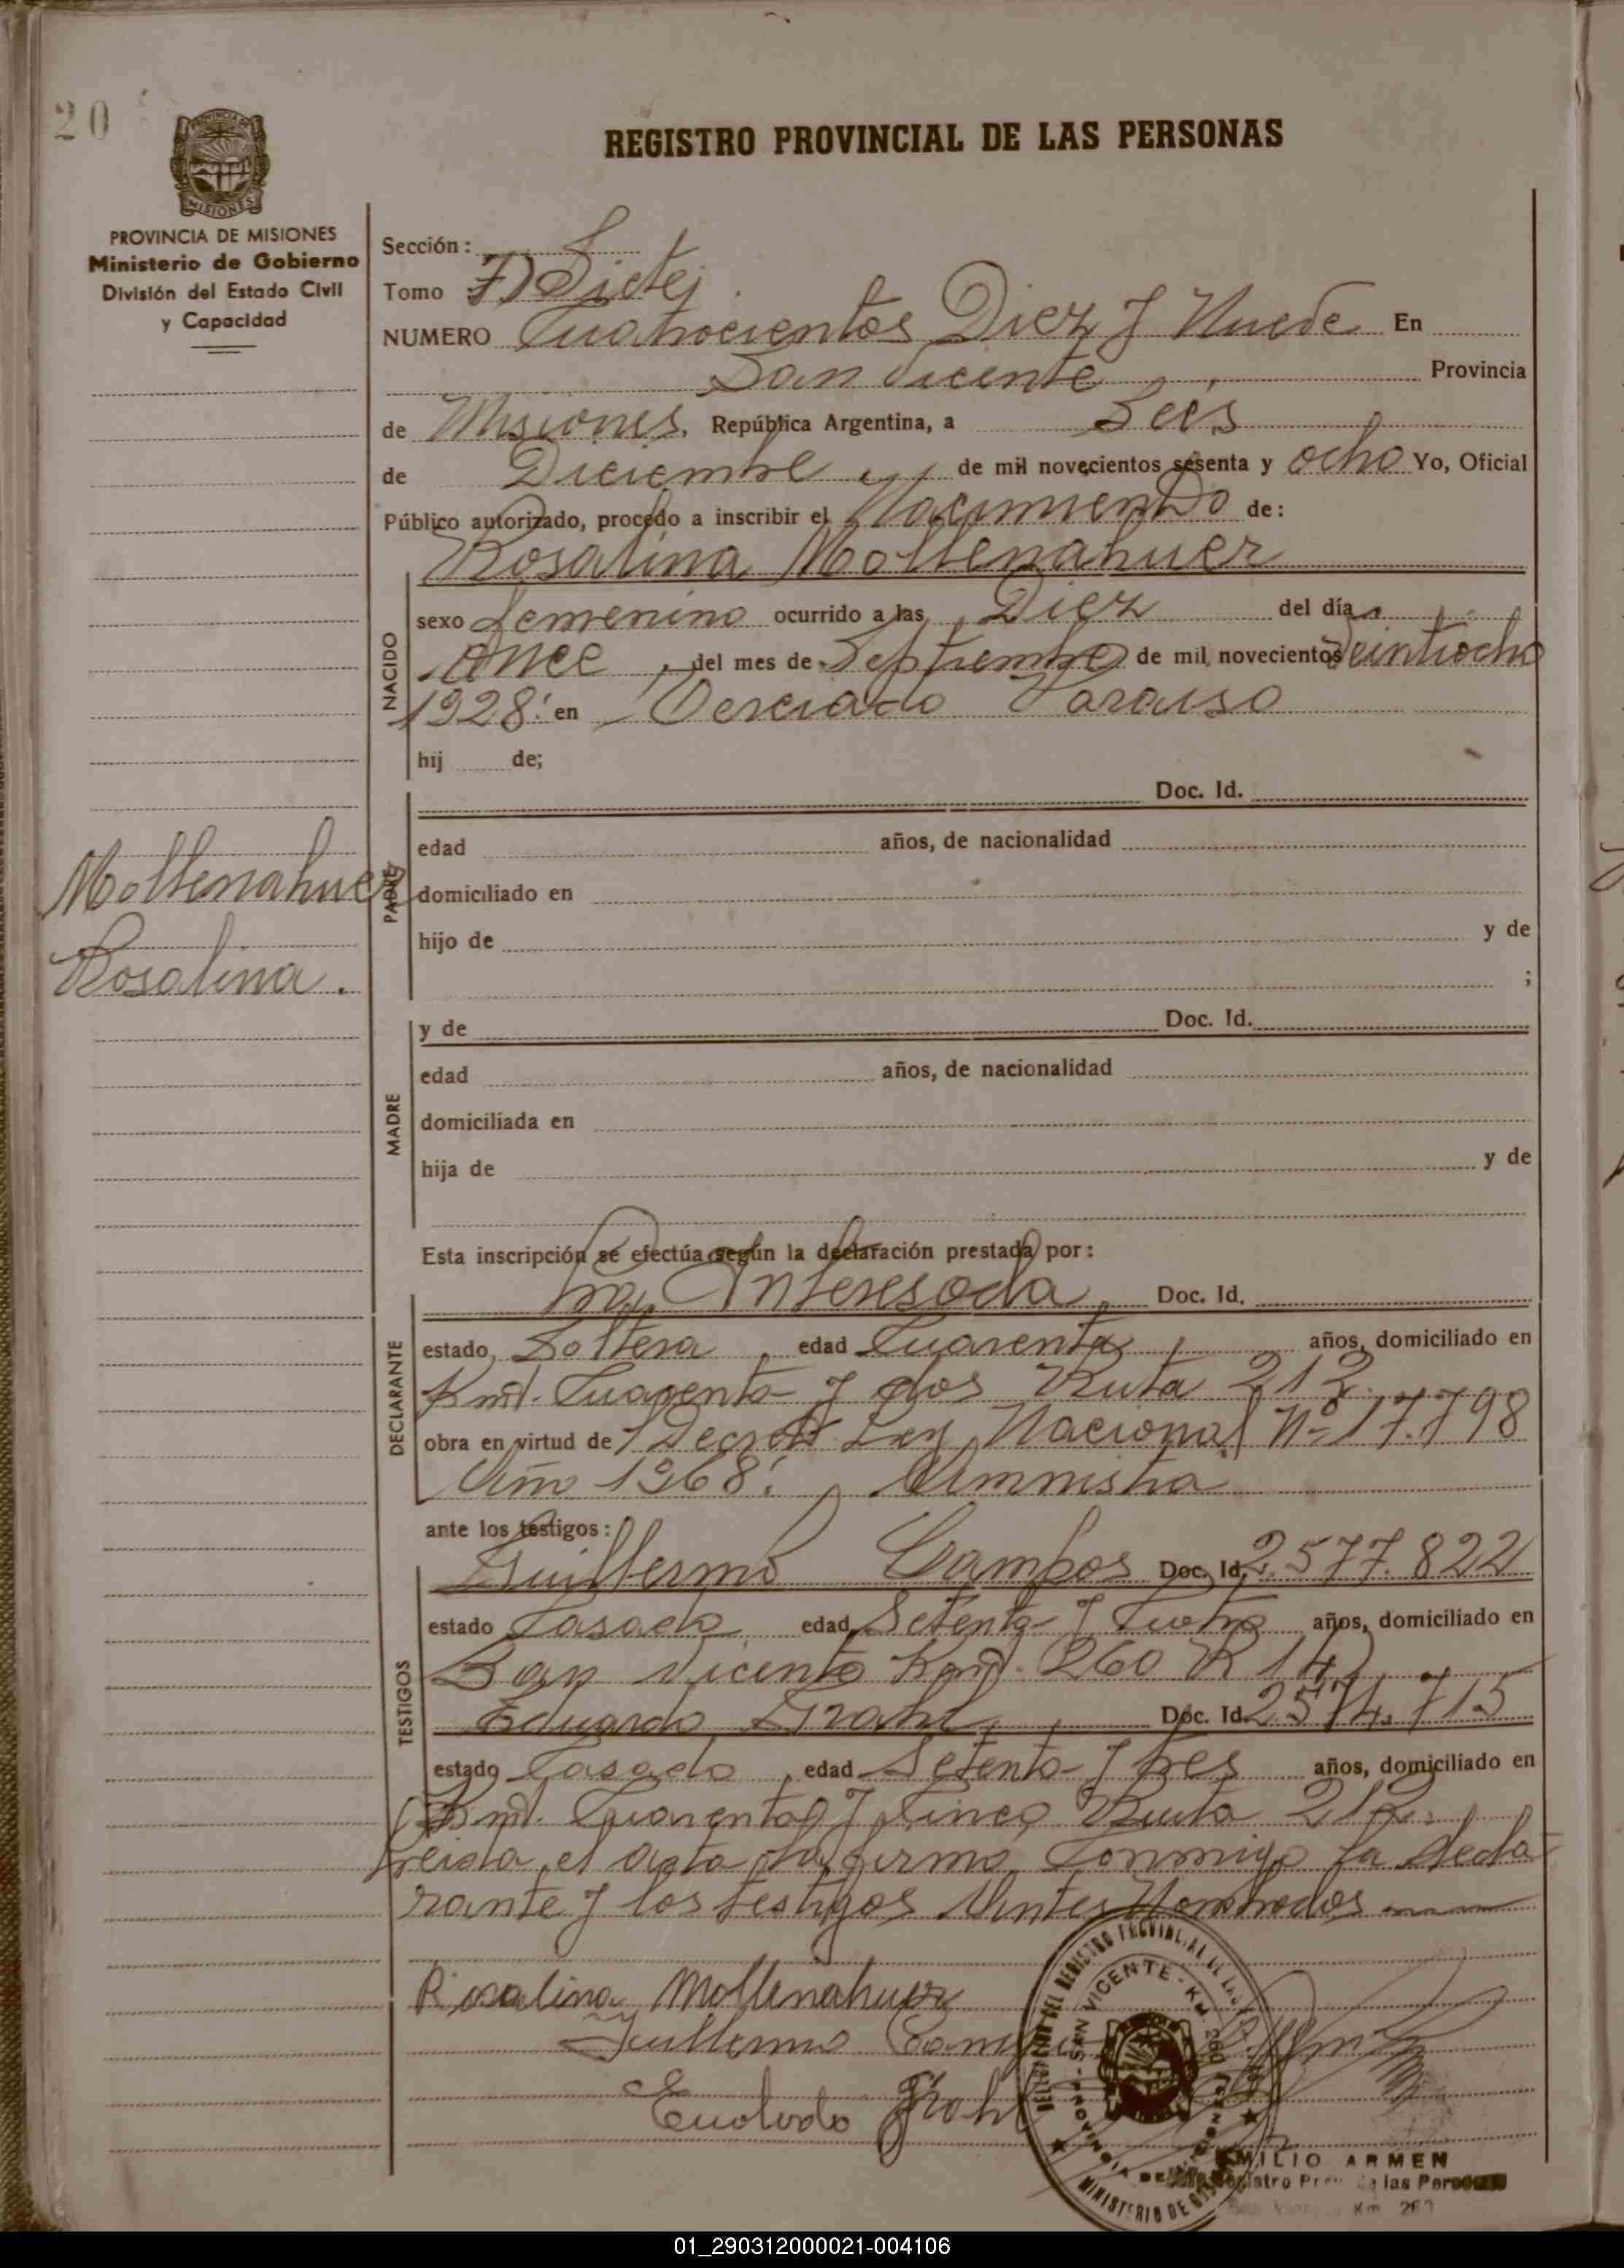 20
REGISTRO PROVINCIAL DE LAS PERSONAS
PROVINCIA DE MISIONES
Ministerio de Gobierno
División del Estado Civil
y Capacidad
Sección:
Tomo 7) Siete
NUMERO Cuatrocientos Diez y Nueve En
San Vicente Provincia
de Misiones, República Argentina, a Seis
de Diciembre de mil novecientos sesenta y ocho Yo, Oficial
Público autorizado, procedo a inscribir el Nacimiento de:
Rosalina Moltenahuer
NACIDO
sexo femenino ocurrido a las Diez del día
once del mes de Septiembre de mil novecientos veintiocho
1928: en Paraiso
hij de;
Doc. Id.
PADRE
edad años, de nacionalidad
domiciliado en
hijo de y de
;
Moltenahuer
Rosalina.
MADRE
y de Doc. Id.
edad años, de nacionalidad
domiciliada en
hija de y de
Esta inscripción se efectúa según la declaración prestada por:
La Interesada Doc. Id.
DECLARANTE
estado Soltera edad Cuarenta años, domiciliado en
Km. Cuarenta y dos Ruta 212
obra en virtud de Decreto Ley Nacional Nº 17.798
Año 1968: Amnistia
ante los testigos:
TESTIGOS
Guillermo Campos Doc. Id. 2.577.822
estado Casado edad Setenta y Cuatro años, domiciliado en
San Vicente Km. 260 R 14)
Eduardo Grahl Doc. Id. 2.574.715
estado Casado edad Setenta y tres años, domiciliado en
Km. Cuarenta y Cinco Ruta 212.
Leida el acta la firma Conmigo la decla
rante y los testigos Antes Nombrados
Rosalina Moltenahuer
Guillermo Campos
Grohl
DELEGACION DEL REGISTRO PROVINCIAL DE LAS
SAN VICENTE - KM. 260
PROVINCIA DE
MINISTERIO DE
EMILIO ARMEN
Registro Prov. de las Personas
Km 260
01_290312000021-004106